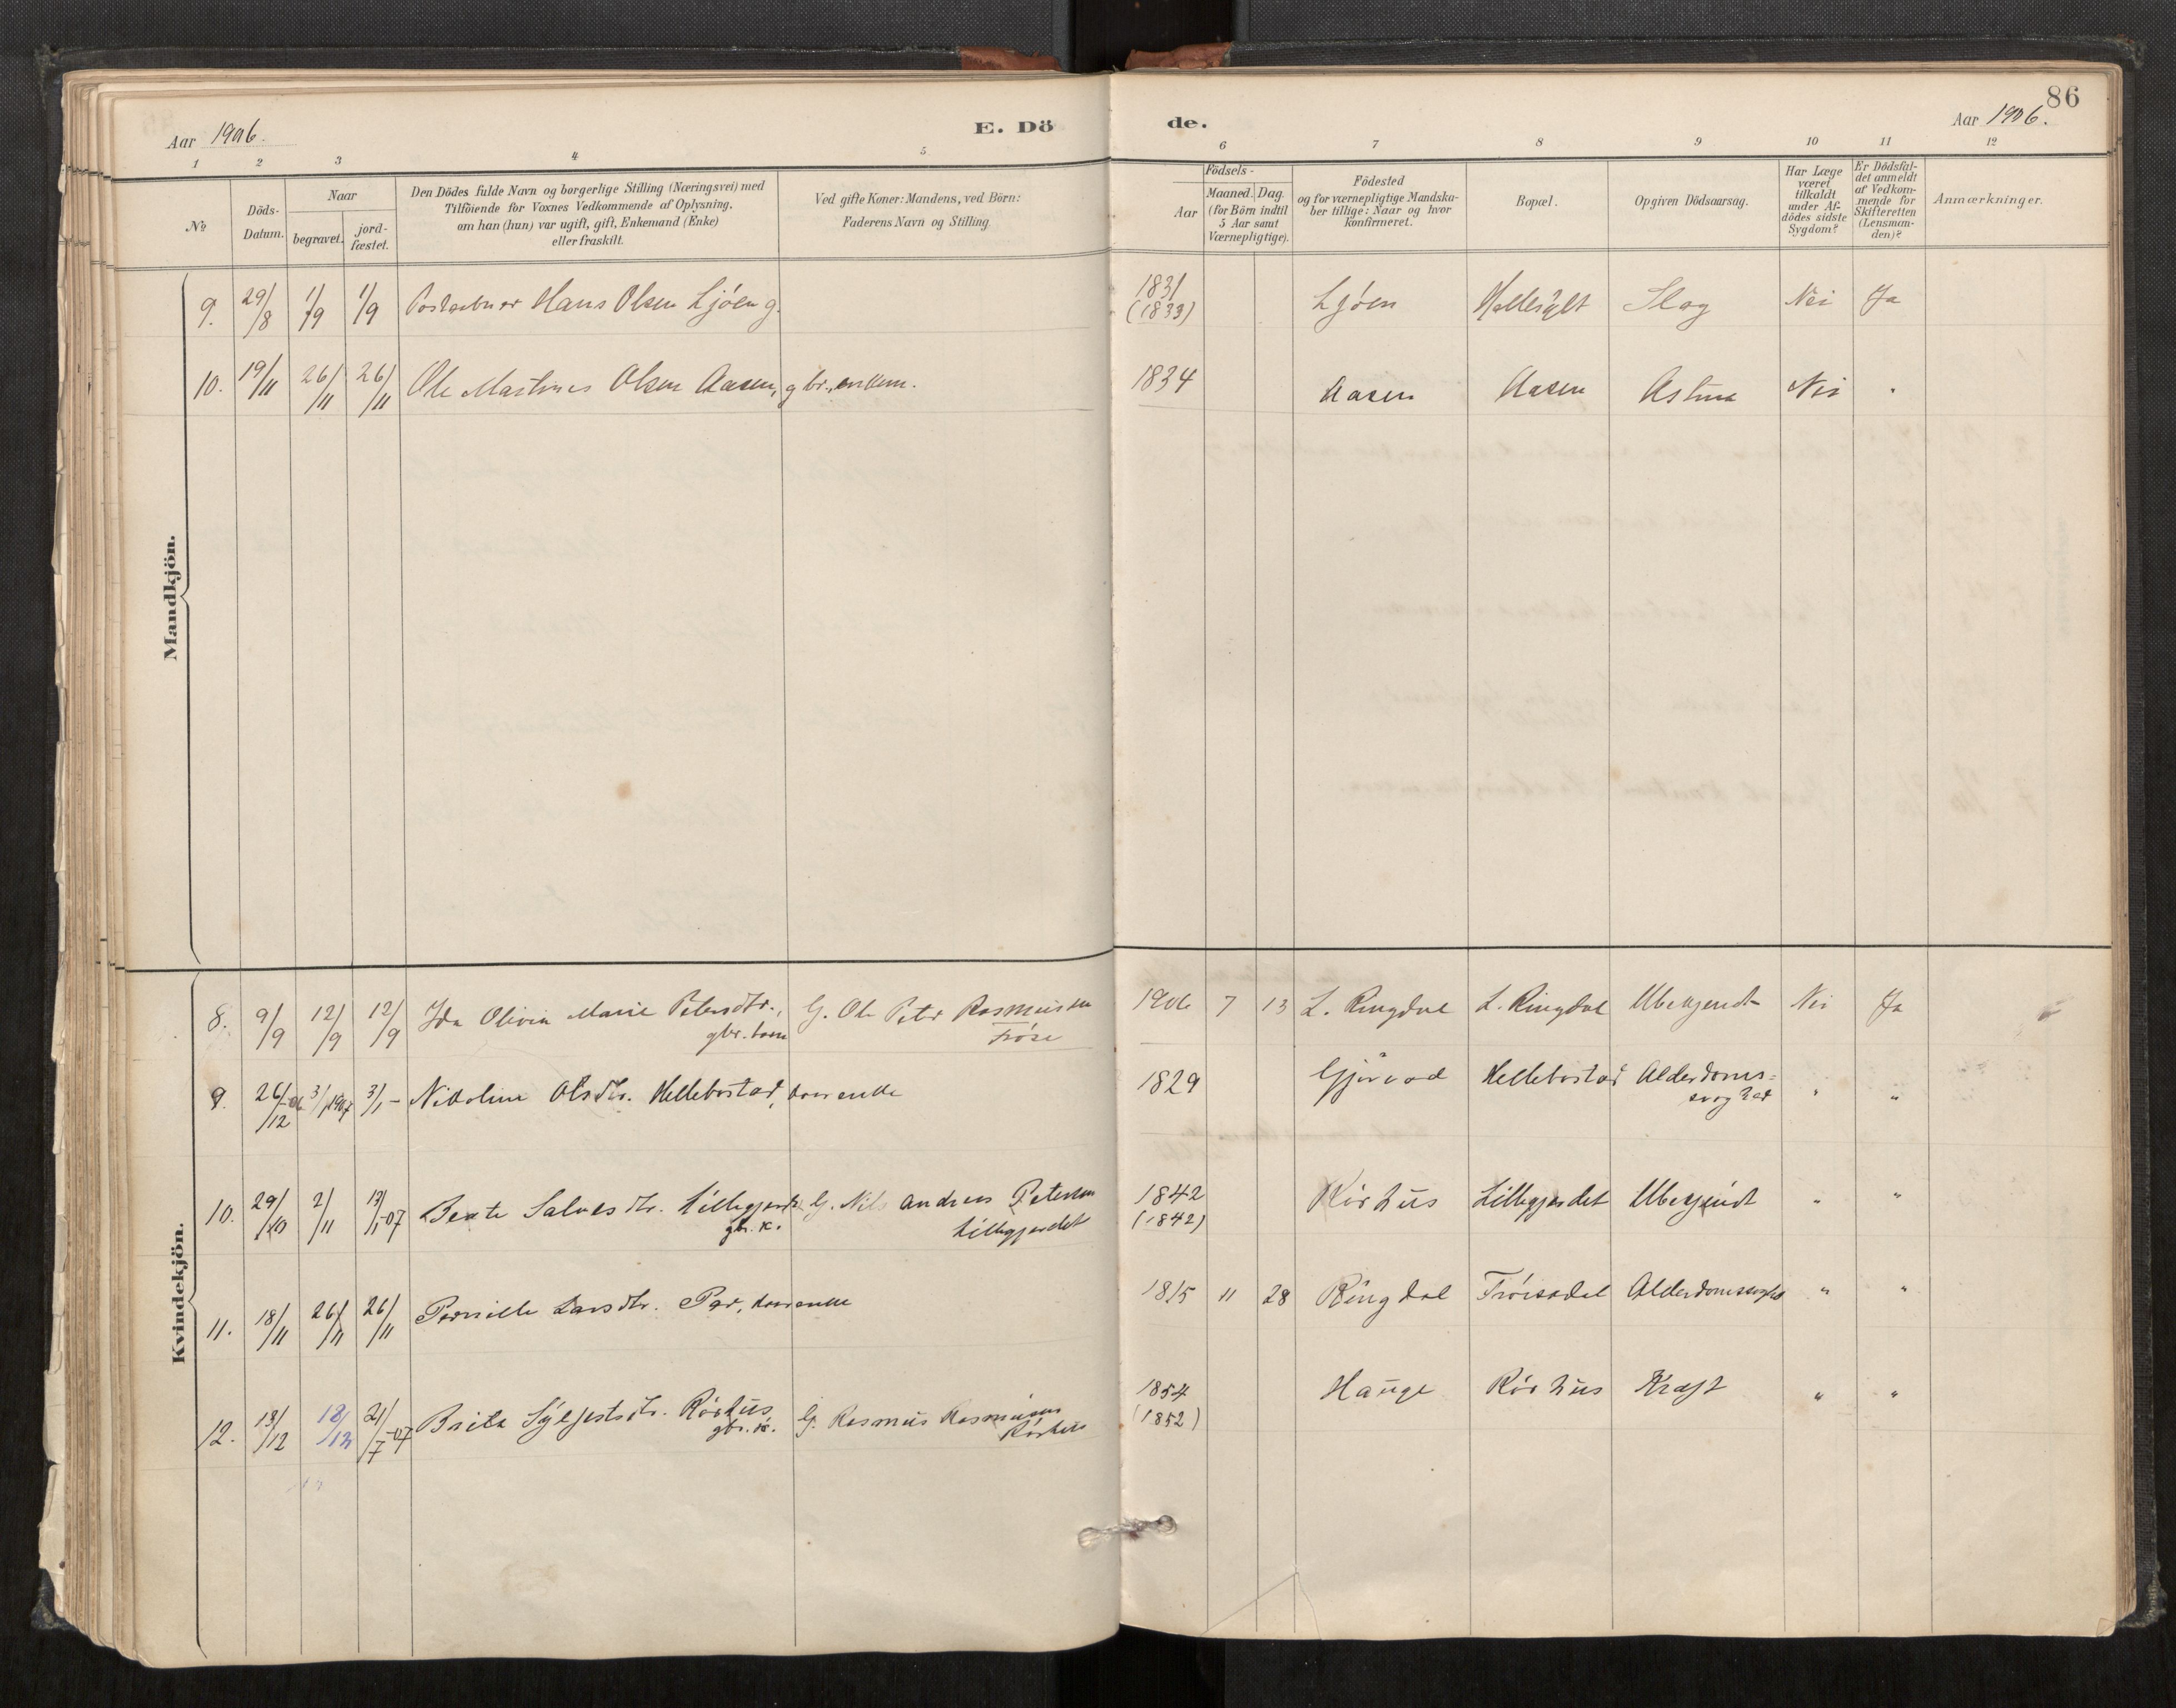 86
Aar 1906.
E. Dö
de.
Aar 1906.
1 2 3 4 5 6 7 8 9 10 11 12
№
Döds-
Datum.
Naar
begravet.
jord-
fæstet.
Den Dödes fulde Navn og borgerlige Stilling (Næringsvei) med
Tilföiende for Voxnes Vedkommende af Oplysning,
om han (hun) var ugift, gift, Enkemand (Enke)
eller fraskilt.
Ved gifte Koner: Mandens, ved Börn:
Faderens Navn og Stilling.
Födsels-
Aar
Maaned. Dag.
(for Börn indtil
5 Aar samt
Værnepligtige).
Födested
og for værnepligtige Mandska-
ber tillige: Naar og hvor
konfirmeret.
Bopæl.
Opgiven Dödsaarsag.
Har Læge
været
tilkaldt
under Af-
dödes sidste
Sygdom?
Er Dödsfal-
det anmeldt
af Vedkom-
mende for
Skifteretten
(Lensman-
den)?
Anmærkninger.
Mandkjön.
9. 29/8 1/9 1/9 Postaabner Hans Olsen Ljöen g. 1831 Ljöen Hellesylt Slag Nei Ja
(1833)
10. 19/11 26/11 26/11 Ole Martinus Olsen Aasen, gbr., enkem. 1834 Aasen Aasen Astma Nei "
Kvindekjön.
8. 9/9 12/9 12/9 Ida Olivia Marie Petersdtr., G. Ole Peter Rasmussen 1906 7 13 L. Ringdal L. Ringdal Ubekjendt Nei Ja
gbr. barn
9. 26/12-06 3/1 1907 3/1 - Nikoline Olsdtr. Hellebostad, kaarenke 1829 Hellebostad Alderdoms=
svaghed " "
10. 29/10 2/11 13/1-07 Beate Salvesdtr. Lillegjerdet G. Nils Andreas Petersen 1842 Rörhus Lillegjerdet Ubekjendt " "
gbr. k. Lillegjerdet (1842)
11. 18/11 26/11 26/11 Pernille Larsdtr. kaarenke 1815 11 28 Ringdal Tröisadal Alderdomssvaghed " "
12. 13/12 18/12 21/7-07 Brite Sylfestsdtr. Rörhus G. Rasmus Rasmussen 1854 Hauge Rörhus Kræft " "
gbr. k. Rörhus (1852)